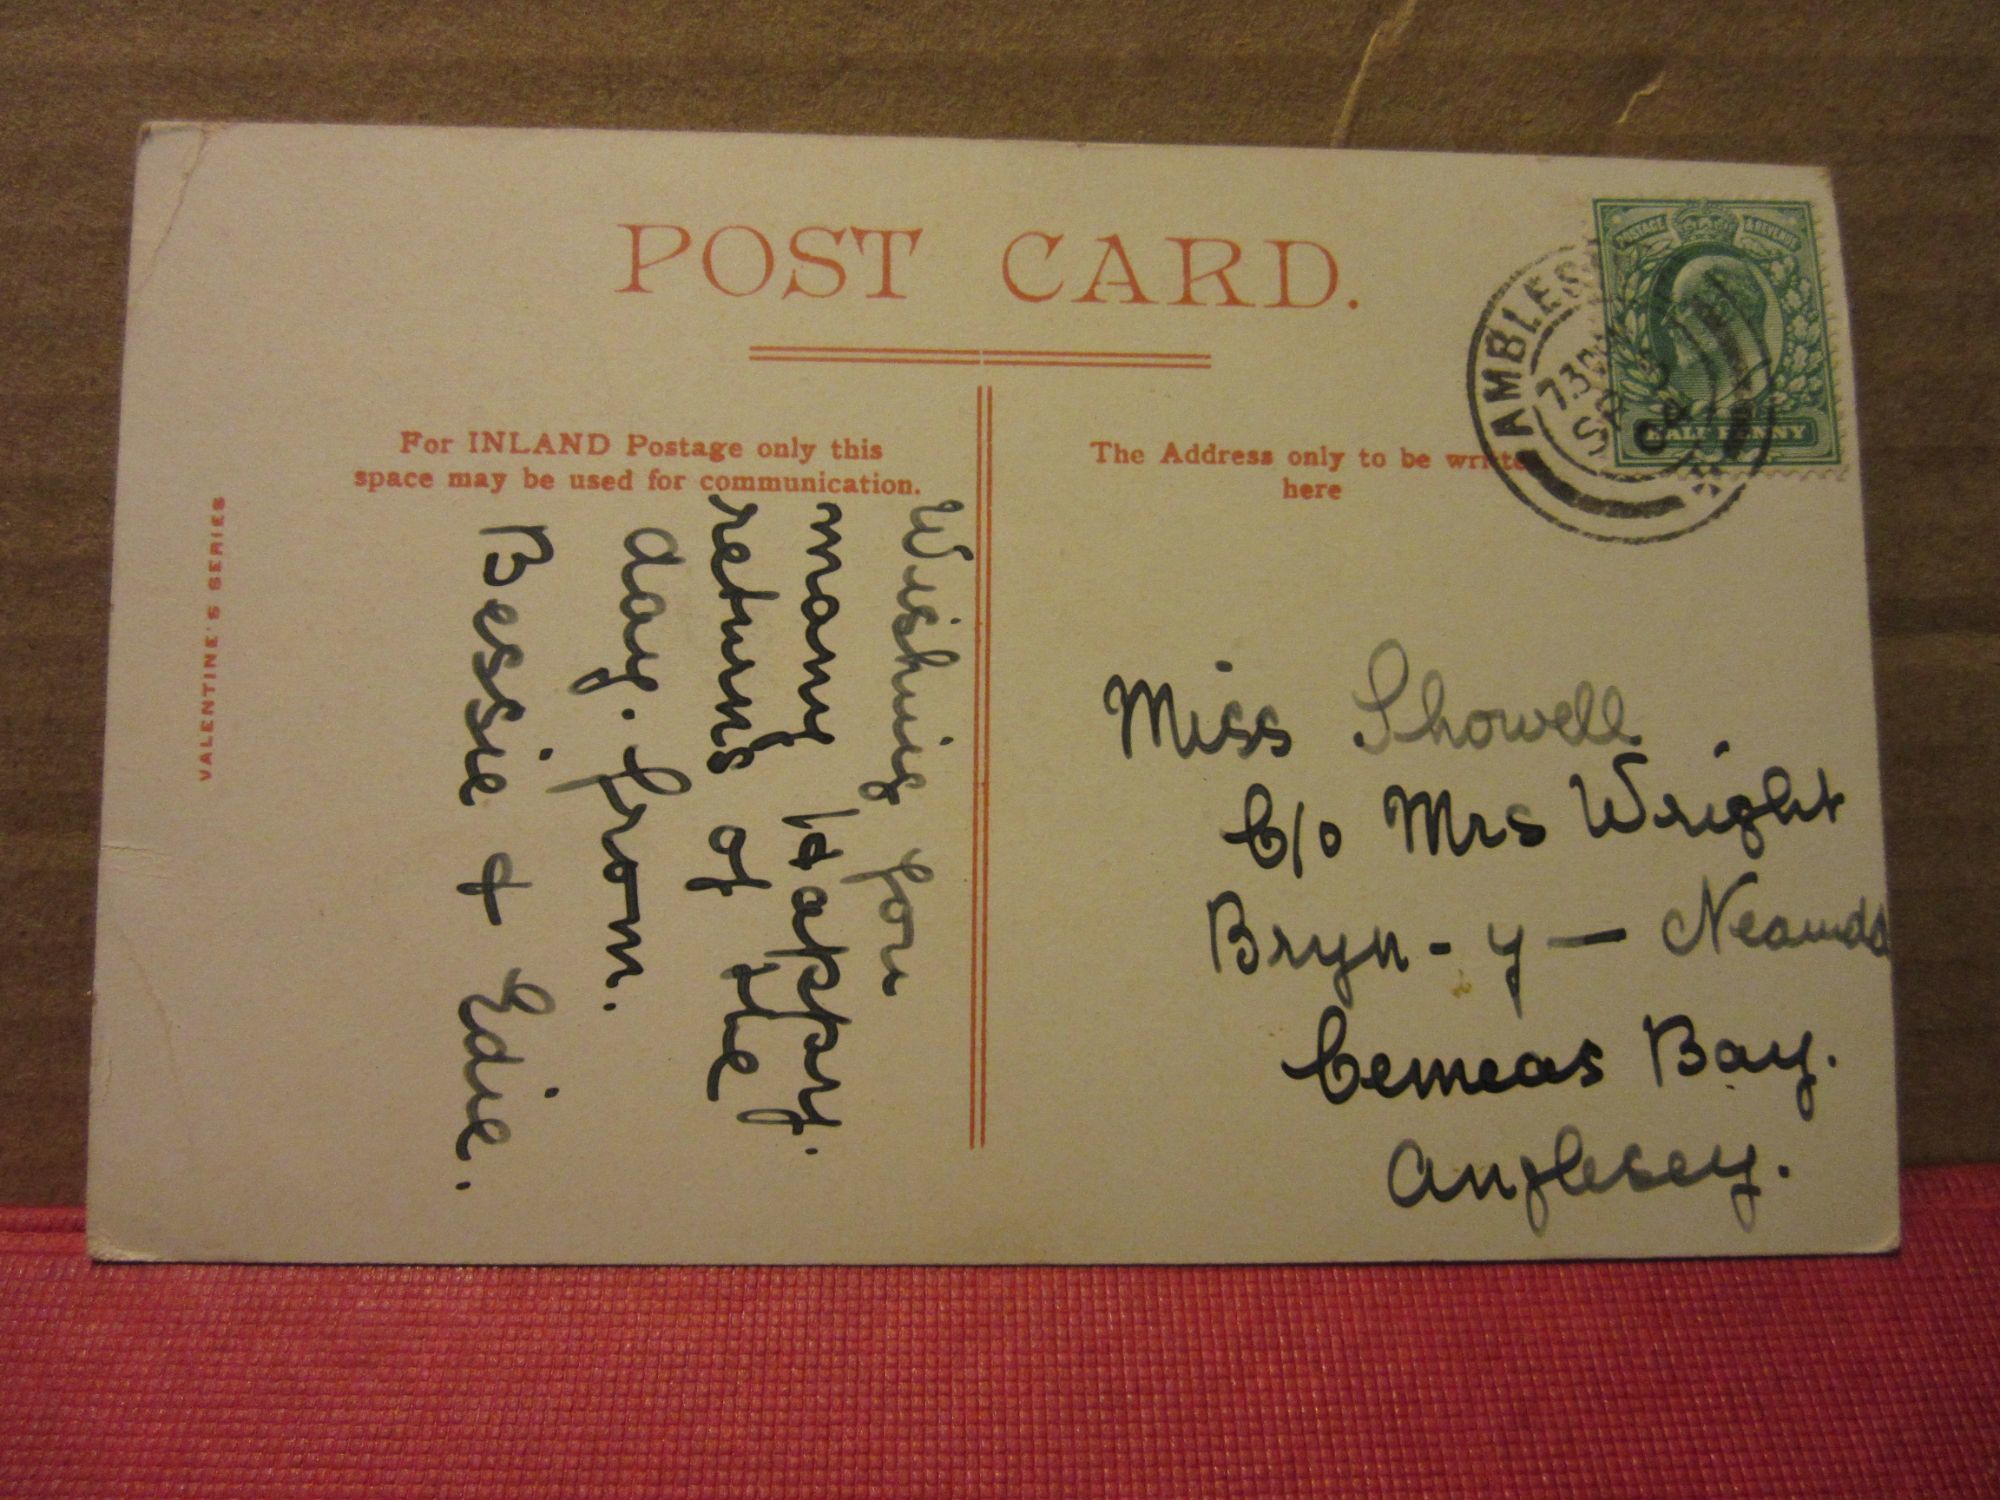 POST CARD.
For INLAND Postage only this
space may be used for communication.
The Address only to be writte
here
VALENTINE'S SERIES
Wishing you
many Happy.
returns of the
day. from.
Bessie & Edie.
Miss Showell
C/o Mrs Wright
Bryn-y-
Cemeas Bay.
Anglesey.
POSTAGE & REVENUE
HALF PENNY
AMBLES
7.30
SP 3